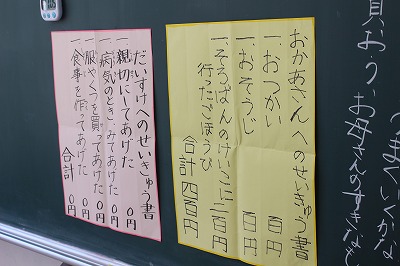 貝おうか
お母さんのすきなと
うまくいくかな
おかあさんへのせいきゅう書
一、おつかい 百円
一、おそうじ 百円
一、そろばんのけいこに 二百円
行ったごほうび
合計 四百円
だいすけへのせいきゅう書
一 親切にしてあげた 0円
一 病気のときみてあげた 0円
一 服やくつを買ってあげた 0円
一 食事を作ってあげた 0円
合計 0円